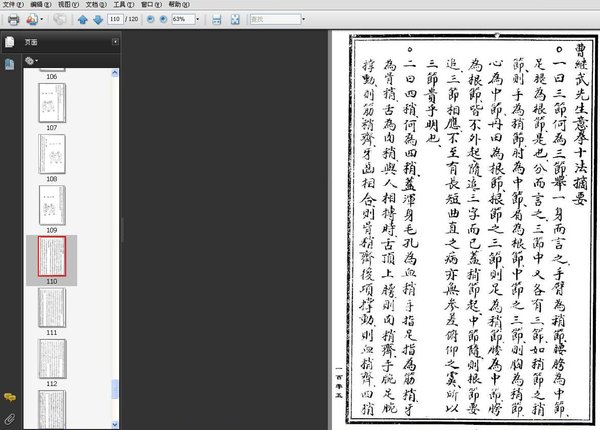 文件(F) 编辑(E) 视图(V) 文档(D) 工具(T) 窗口(W) 帮助(H)
110 / 120 63% 查找
页面
106
107
108
109
110
111
112
曹继武先生意拳十法摘要
一曰三節何為三節舉一身而言之手臂為稍節腰膀為中節
足腿為根節是也分而言之三節中又各有三節如稍節之稍
節則手為稍節肘為中節肩為根節中節之三節則胸為稍節
心為中節丹田為根節根節之三節則足為稍節膝為中節膀
為根節皆不外起隨追三字而已蓋稍節起中節隨則根節要
追三節相應不至有長短曲直之病亦無參差俯仰之虞所以
三節貴乎明也
二曰四稍何為四稍蓋渾身毛孔為血稍手指足指為筋稍牙
為骨稍舌為肉稍與人相摶時舌頂上膀則肉稍齊手腕足腕
撐動則筋稍齊牙齒相合則骨稍齊後項撐動則血稍齊四稍
一百零五